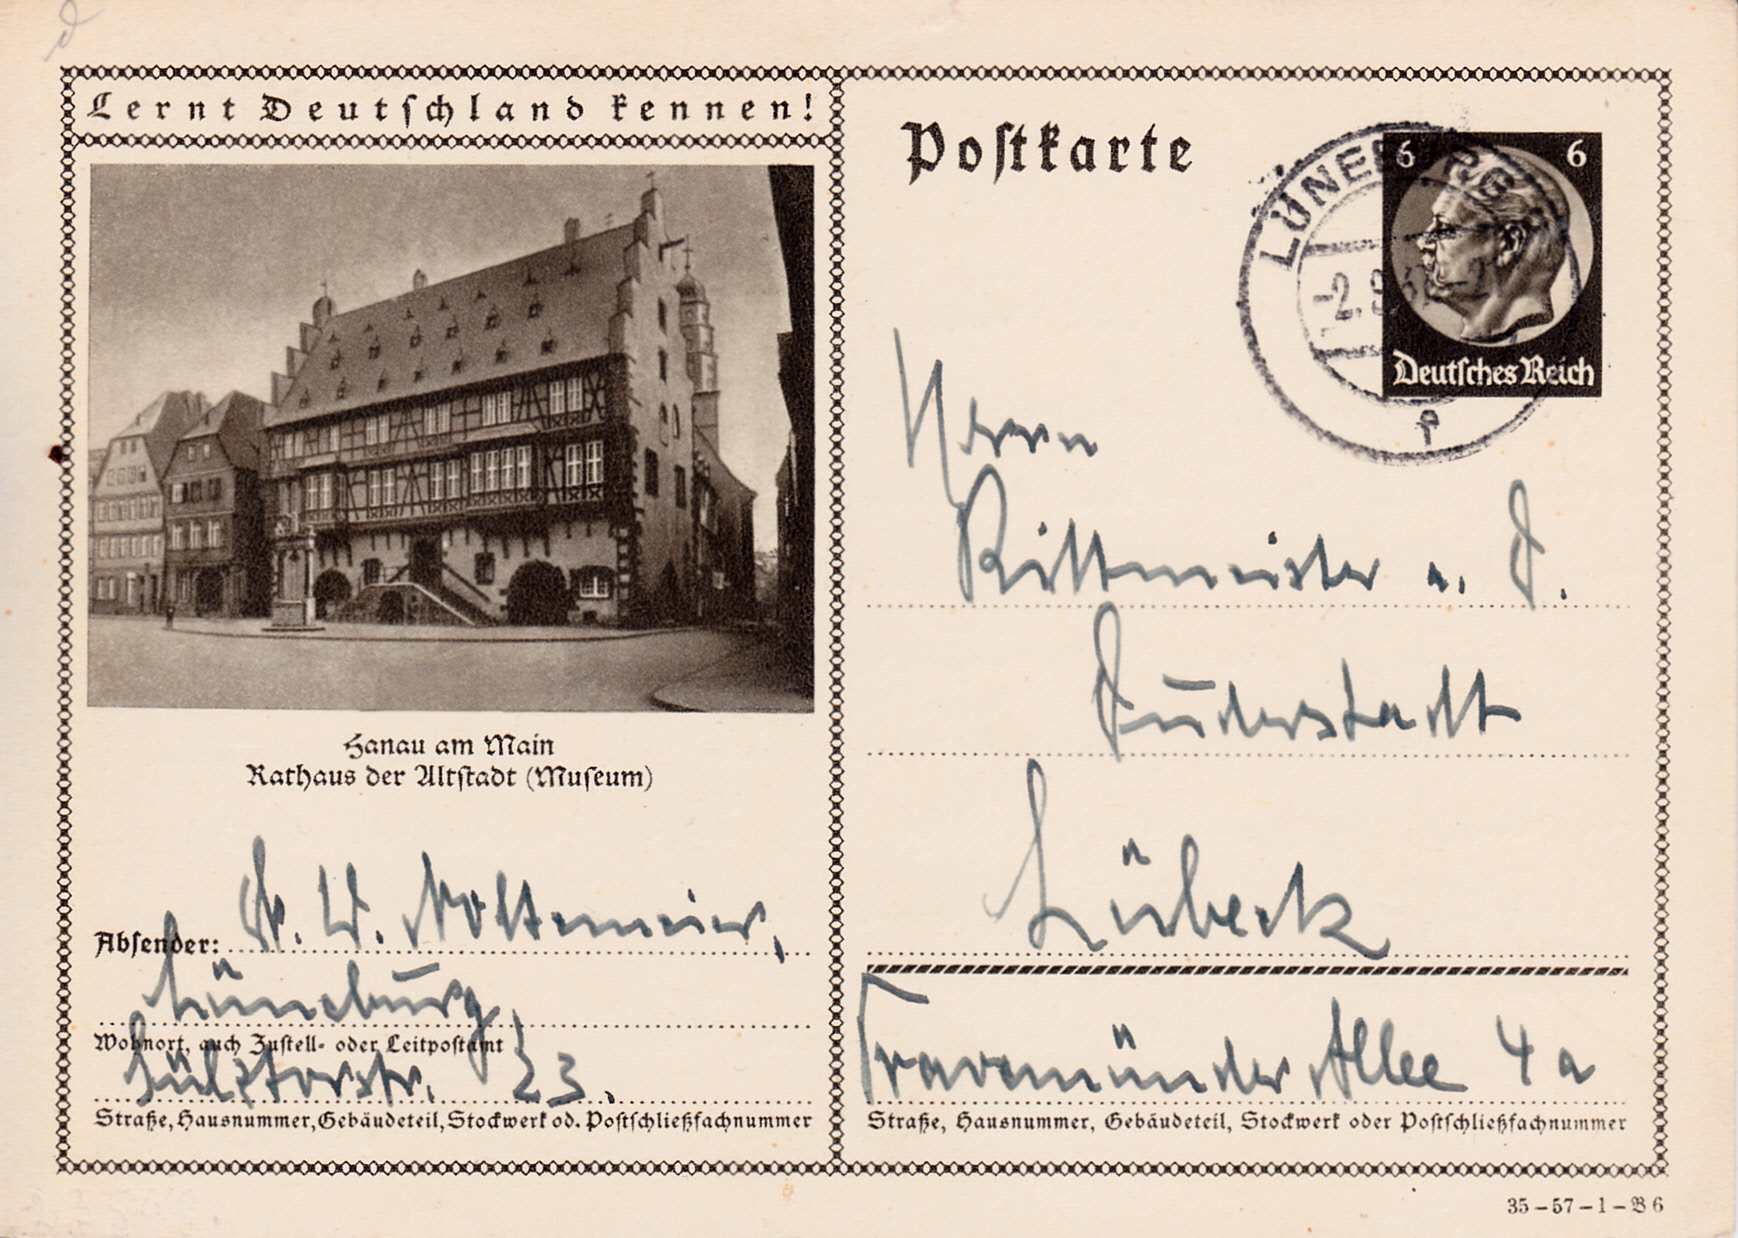 Lernt Deutschland kennen!
Hanau am Main
Rathaus der Altstadt (Museum)
Absender: Fr. W. Noltemeier,
Lüneburg,
Wohnort, auch Zustell- oder Leitpostamt
Sülztorstr. 23.
Straße, Hausnummer, Gebäudeteil, Stockwerk od. Postschließfachnummer
Postkarte
LÜNEBURG
6 6
Deutsches Reich
f
Herrn
Rittmeister a. D.
Duderstadt
Lübeck
Travemünder Allee 4a
Straße, Hausnummer, Gebäudeteil, Stockwerk oder Postschließfachnummer
35-57-1-B6